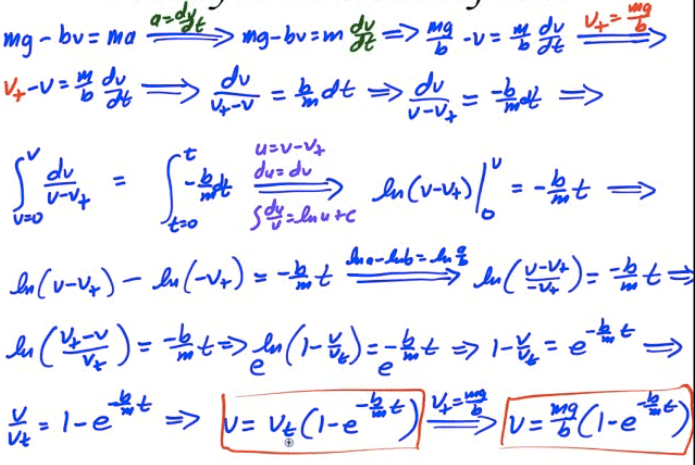 mg - bv = ma ⟹ (a = dv/dt) mg - bv = m dv/dt ⟹ mg/b - v = m/b dv/dt ⟹ (v_t = mg/b)
v_t - v = m/b dv/dt ⟹ dv/(v_t - v) = b/m dt ⟹ dv/(v - v_t) = -b/m dt ⟹
∫_{v=0}^{v} dv/(v - v_t) = ∫_{t=0}^{t} -b/m dt ⟹ (u = v - v_t, du = dv, ∫ du/u = ln u + c) ln(v - v_t) |_0^v = -b/m t ⟹
ln(v - v_t) - ln(-v_t) = -b/m t ⟹ (ln a - ln b = ln a/b) ln((v - v_t)/(-v_t)) = -b/m t ⟹
ln((v_t - v)/v_t) = -b/m t ⟹ e^{ln(1 - v/v_t)} = e^{-b/m t} ⟹ 1 - v/v_t = e^{-b/m t} ⟹
v/v_t = 1 - e^{-b/m t} ⟹ v = v_t(1 - e^{-b/m t}) ⟹ (v_t = mg/b) v = mg/b(1 - e^{-b/m t})